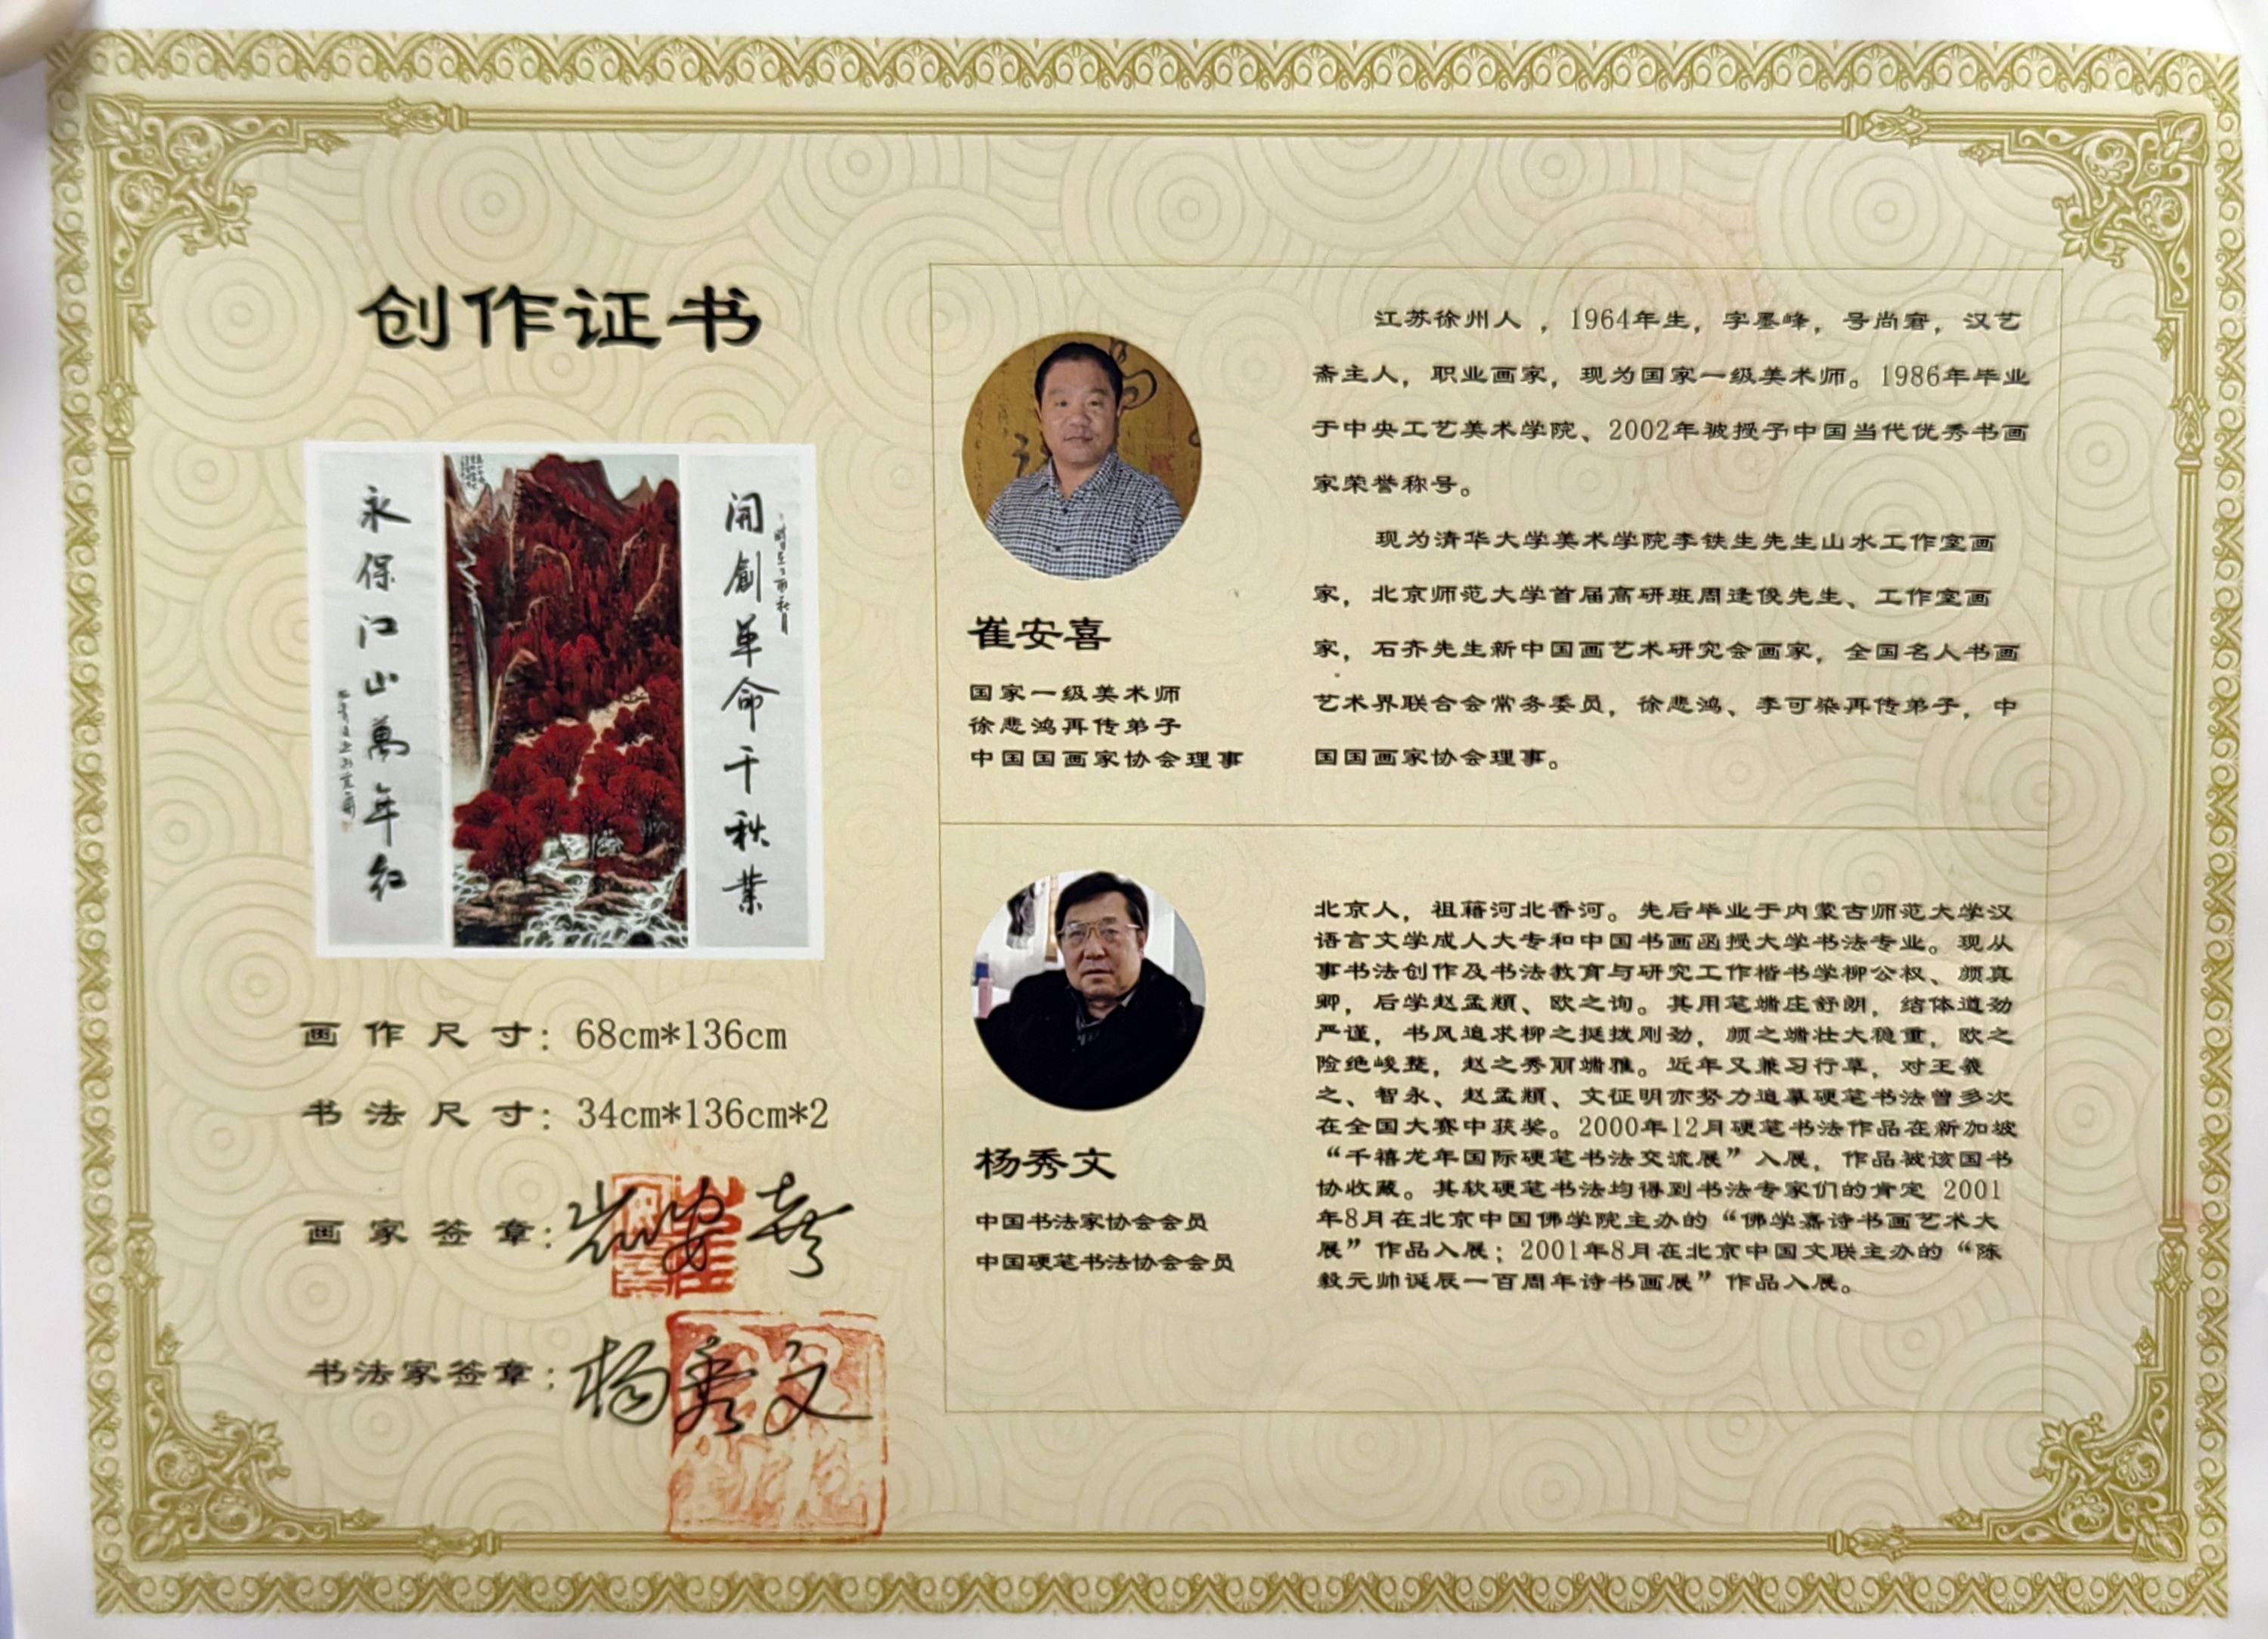 创作证书
开創革命千秋業
永保江山萬年红
画作尺寸：68cm*136cm
书法尺寸：34cm*136cm*2
画家签章：崔安喜
书法家签章：杨秀文
崔安喜
国家一级美术师
徐悲鸿再传弟子
中国国画家协会理事
江苏徐州人 ，1964年生，字墨峰，号尚窘，汉艺
斋主人，职业画家，现为国家一级美术师。1986年毕业
于中央工艺美术学院、2002年被授予中国当代优秀书画
家荣誉称号。
现为清华大学美术学院李铁生先生山水工作室画
家，北京师范大学首届高研班周逢俊先生、工作室画
家，石齐先生新中国画艺术研究会画家，全国名人书画
艺术界联合会常务委员，徐悲鸿、李可染再传弟子，中
国国画家协会理事。
杨秀文
中国书法家协会会员
中国硬笔书法协会会员
北京人，祖籍河北香河。先后毕业于内蒙古师范大学汉
语言文学成人大专和中国书画函授大学书法专业。现从
事书法创作及书法教育与研究工作楷书学柳公权、颜真
卿，后学赵孟頫、欧之询。其用笔端庄舒朗，结体遒劲
严谨，书风追求柳之挺拨刚劲，颜之端壮大稳重，欧之
险绝峻整，赵之秀丽端雅。近年又兼习行草，对王羲
之、智永、赵孟頫、文征明亦努力追摹硬笔书法曾多次
在全国大赛中获奖。2000年12月硬笔书法作品在新加坡
“千禧龙年国际硬笔书法交流展”入展，作品被该国书
协收藏。其软硬笔书法均得到书法专家们的肯定 2001
年8月在北京中国佛学院主办的“佛学嘉诗书画艺术大
展”作品入展；2001年8月在北京中国文联主办的“陈
毅元帅诞辰一百周年诗书画展”作品入展。